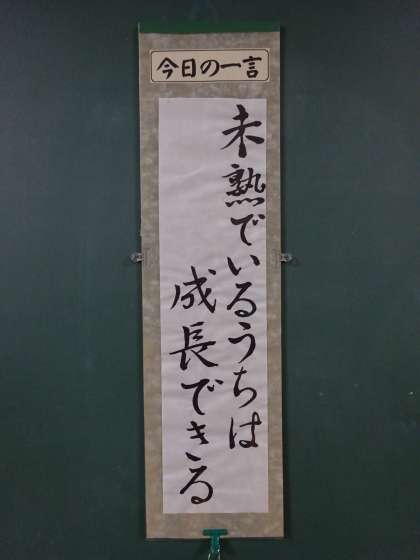 今日の一言
未熟でいるうちは
成長できる